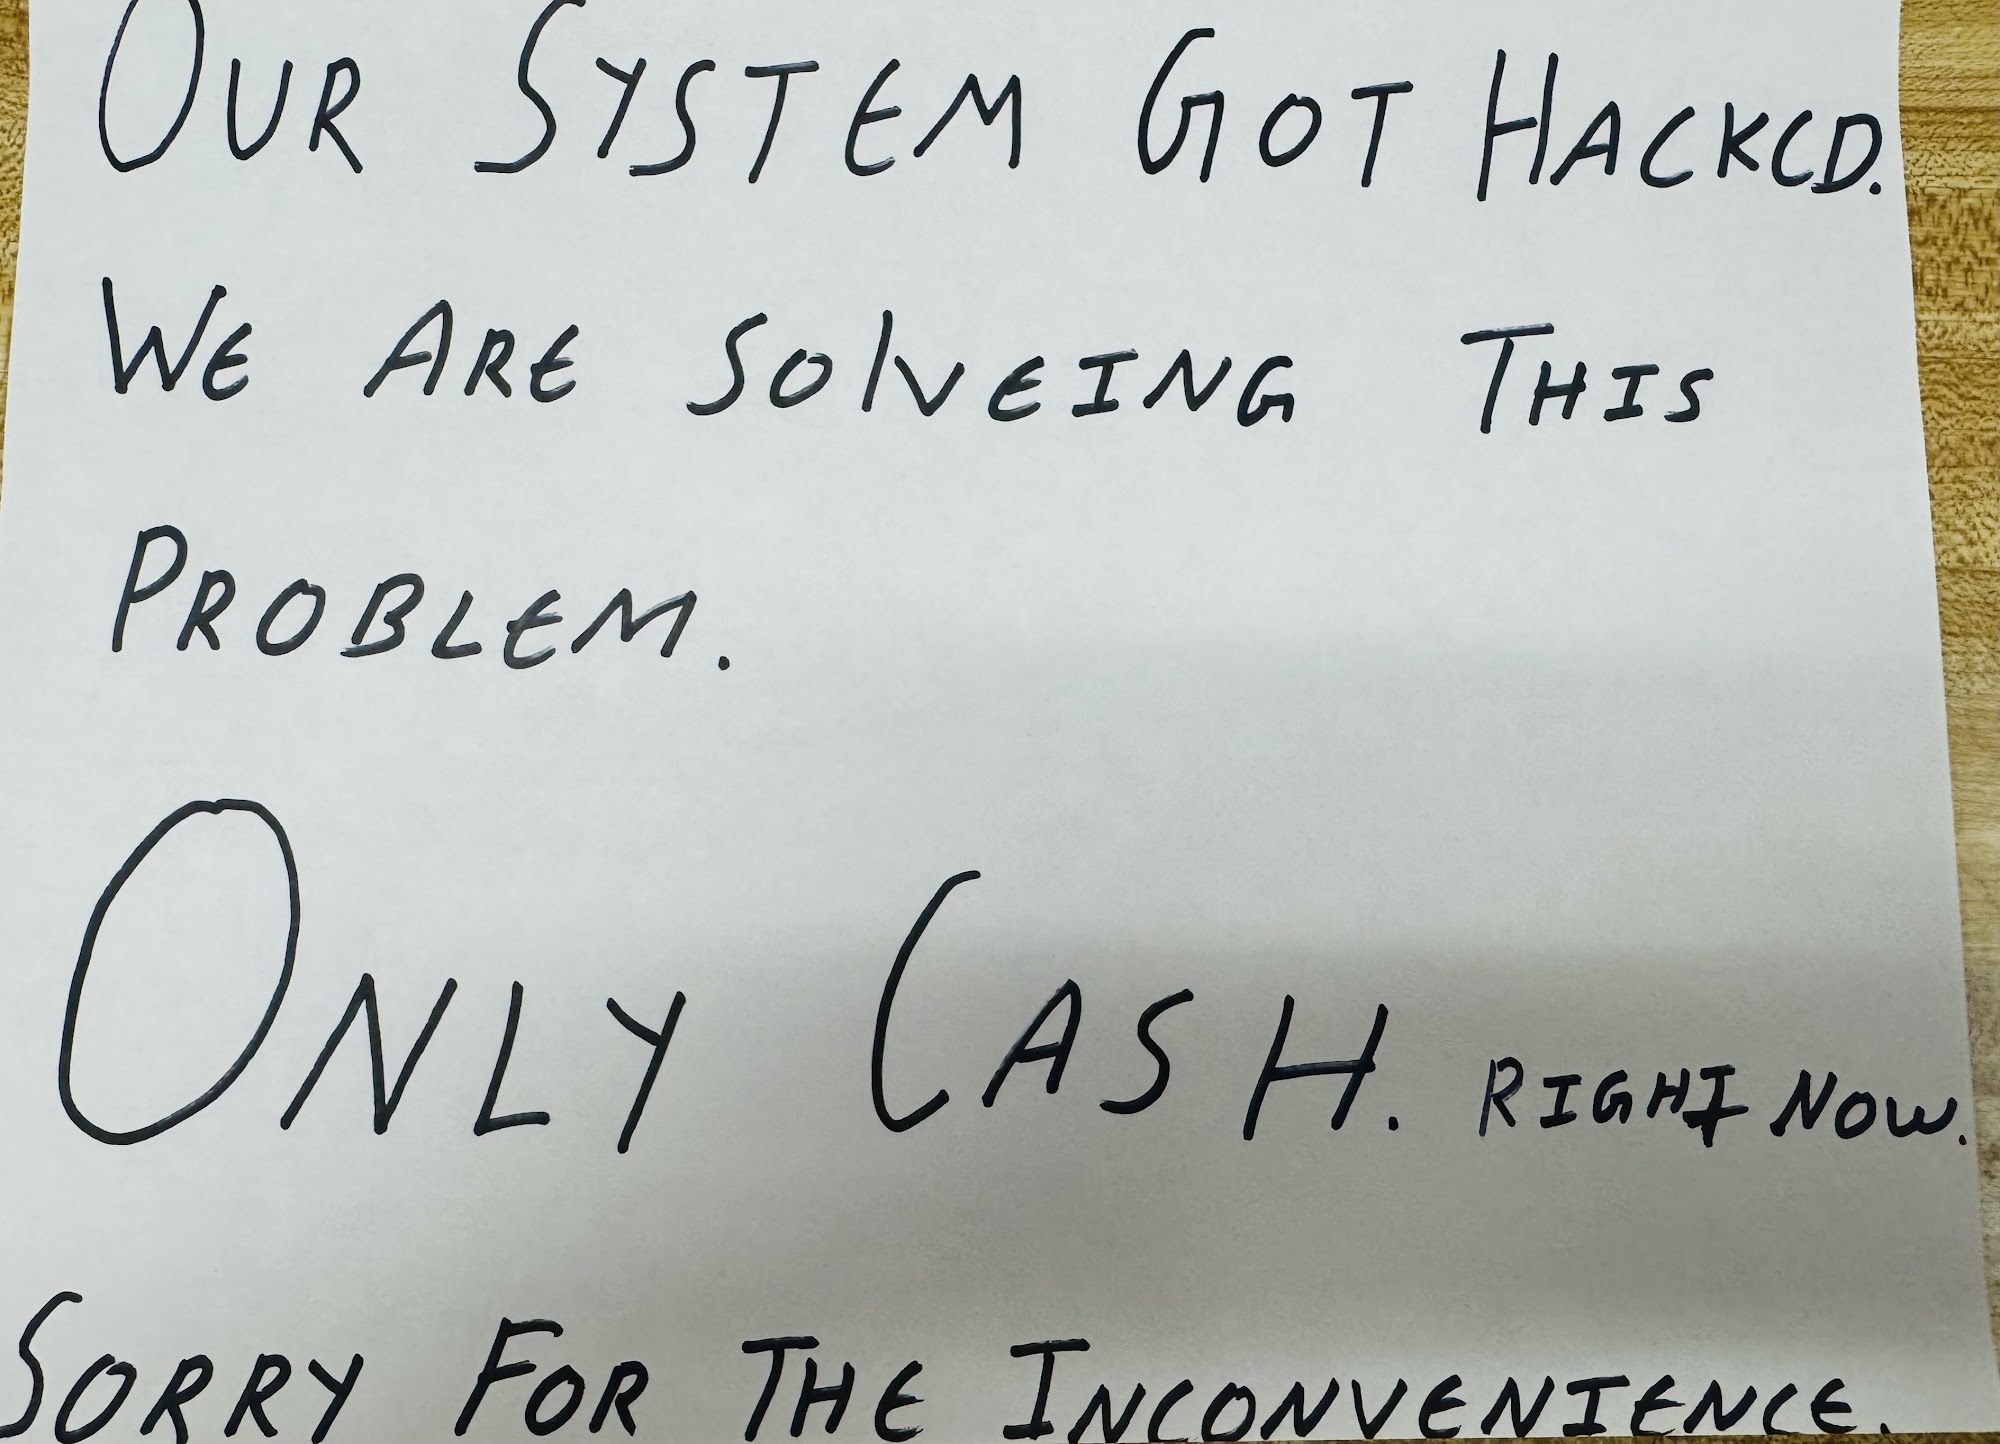 OUR SYSTEM GOT HACKCD.
WE ARE SOLVEING THIS
PROBLEM.
ONLY CASH. RIGHT NOW.
SORRY FOR THE INCONVENIENCE.